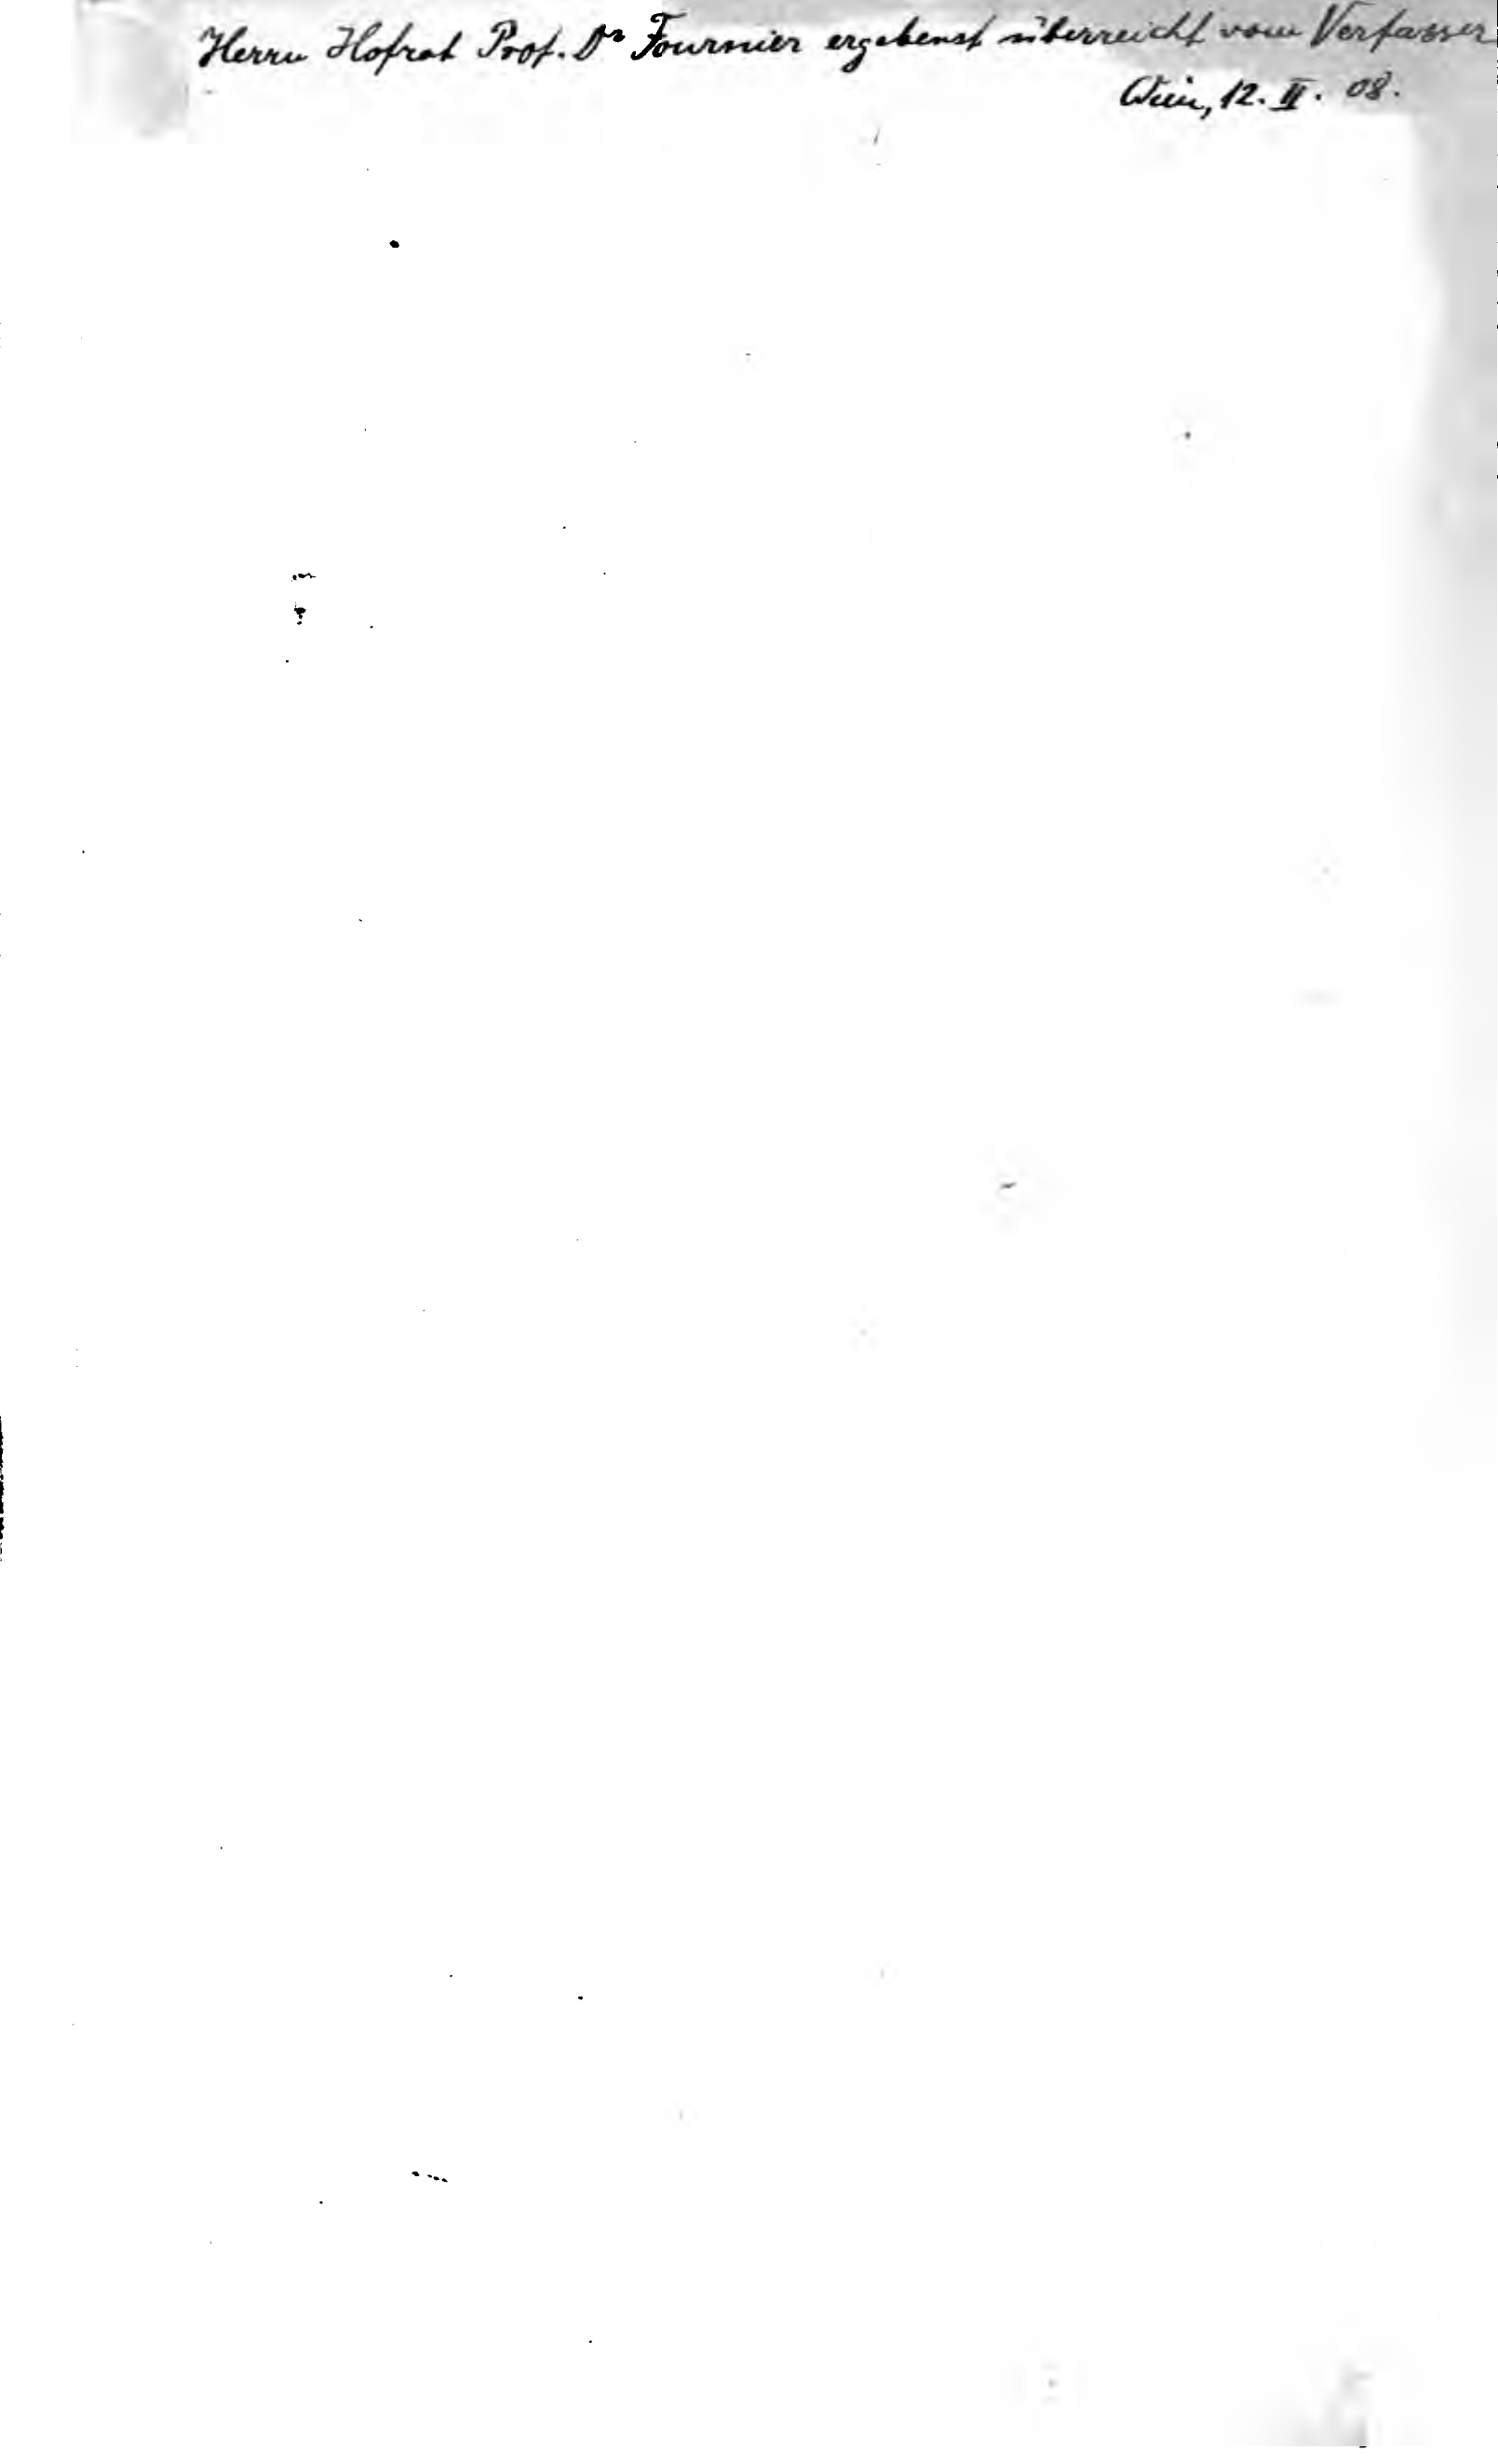 Herrn Hofrat Prof. Dr Fournier ergebenst überreicht vom Verfasser
Wien, 12. II. 08.